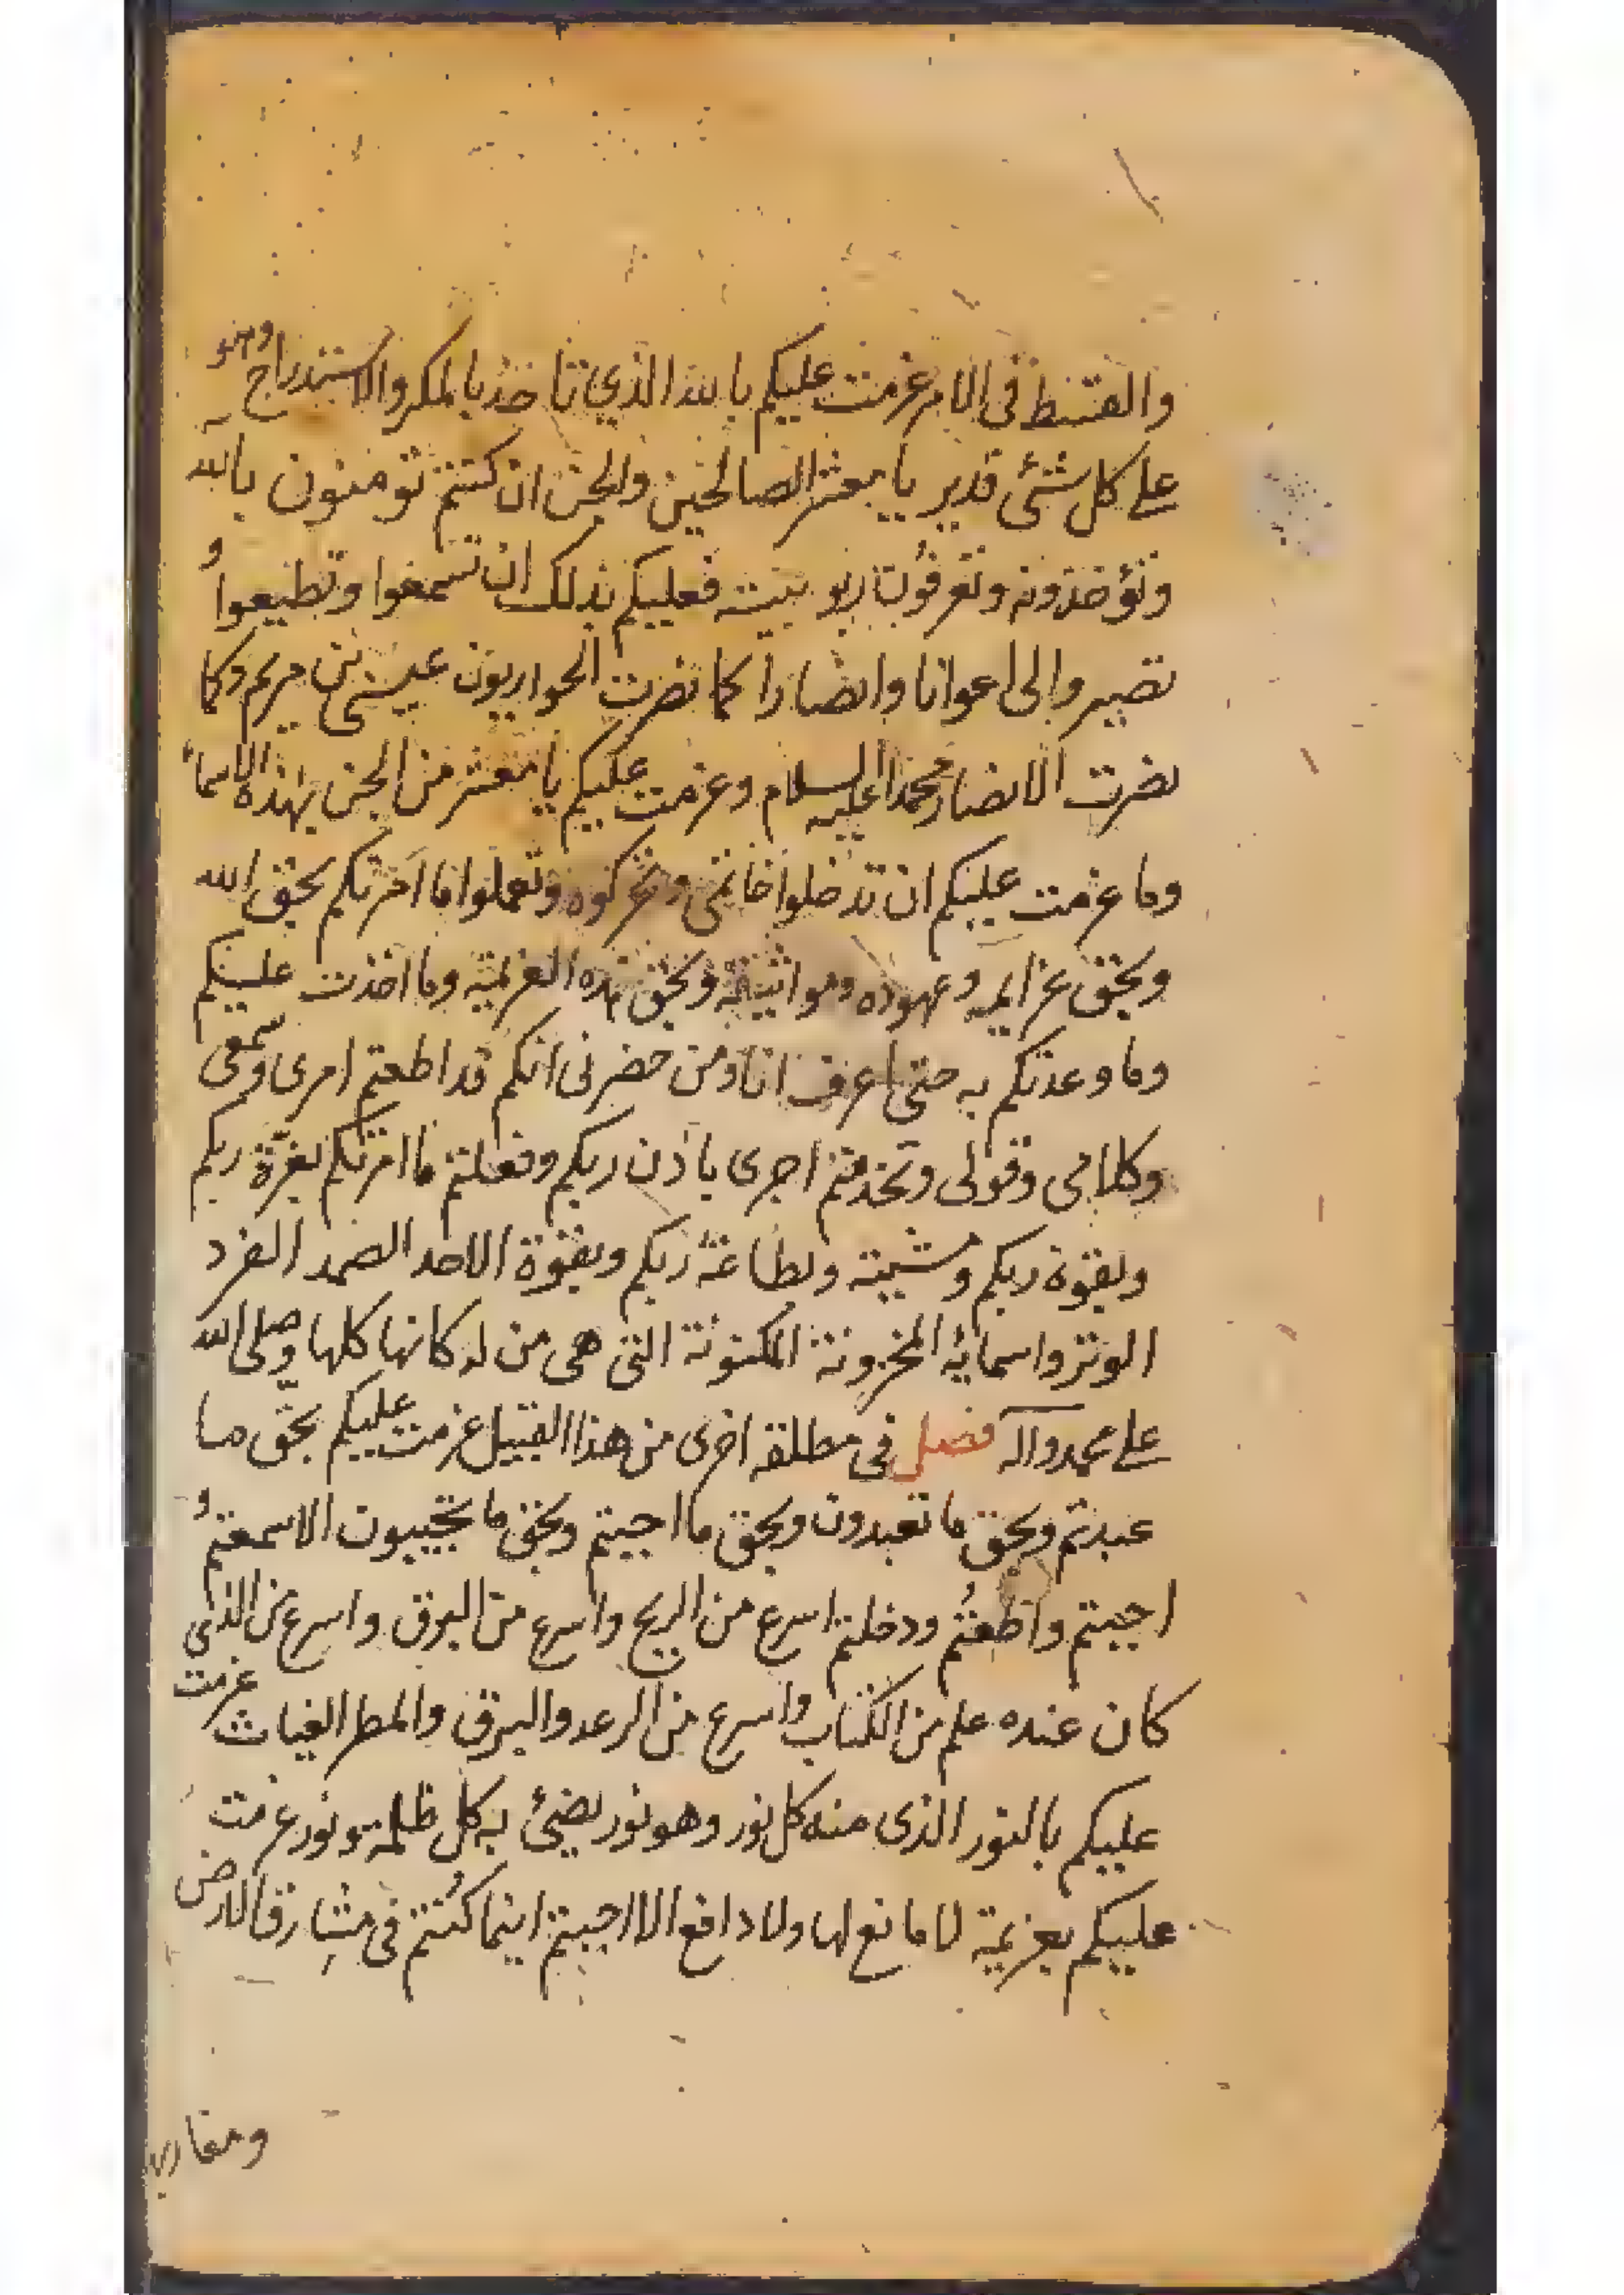 والقنط فى الامر عزمت عليكم بالله الذي تاخذ بالمكر والاستدراج وهو
على كل شئ قدير يا معشر الصالحين والجن ان كنتم تومنون بالله
وتؤخذونه وتعرفون ربوبيته فعليكم بذلك ان تسمعوا وتطيعوا و
تصيروا لى اعوانا وانصارا كما نصرت الحواريون عيسى بن مريم وكما
نصرت الانصار محمدا عليه السلام وعزمت عليكم يا معشر من الجن بهذه الاسماء
وما عزمت عليكم ان تدخلوا خاتمى وتحركوه وتعملوا ما امرتكم بحق الله
وبحق عزايمه وعهوده ومواثيقه وبحق هذه العزيمة وما اخذت عليكم
وما وعدتكم به حتى اعرف انا ومن حضرنى انكم قد اطعتم امرى وسمعى
وكلامى وقولى وتخدمتم اجرى باذن ربكم وفعلتم ما امرتكم بعزة ربكم
وبقوة ربكم ومشيته وبطاعة ربكم وبقوة الاحد الصمد الفرد
الوتر واسمايه المخزونة المكنونة التى هى من اركانها كلها وصلى الله
على محمد واله فصل فى مطلقه اخرى من هذا القبيل عزمت عليكم بحق ما
عبدتم وبحق ما تعبدون وبحق ما اجبتم وبحق ما تجيبون الا سمعتم و
اجبتم واطعتم ودخلتم اسرع من الريح واسرع من البرق واسرع من الذى
كان عنده علم من الكتاب واسرع من الرعد والبرق والمطر الغياث عزمت
عليكم بالنور الذى منه كل نور وهو نور يضئ به كل ظلمة ونور عزمت
عليكم بعزيمة لا مانع لها ولا دافع الا اجبتم اينما كنتم فى مشارق الارض
ومغارب